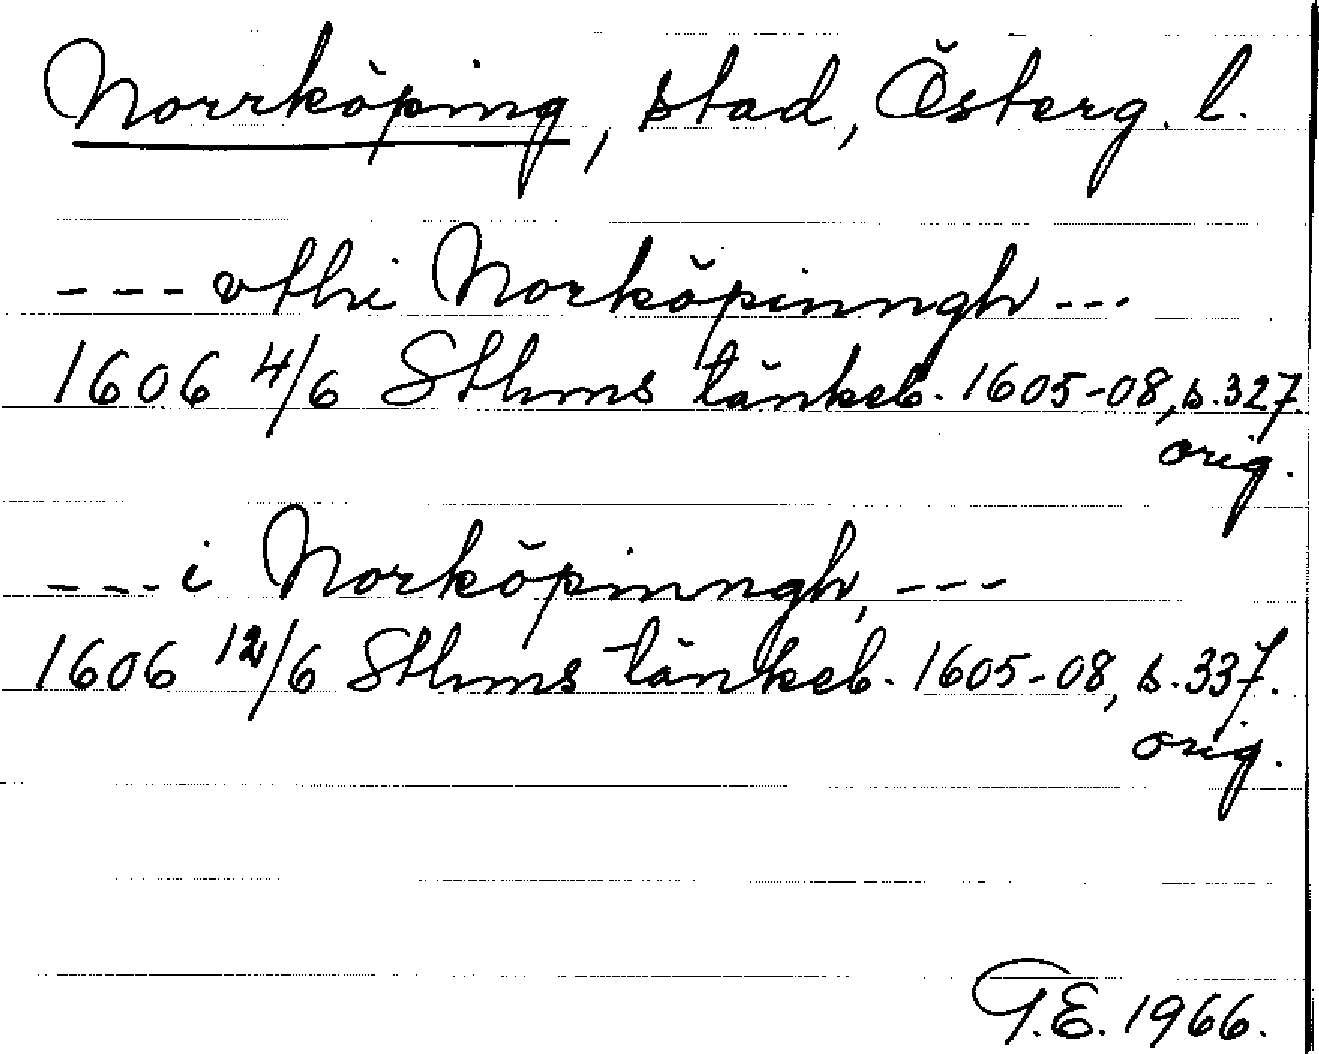 Norrköping, stad, Österg. l.
--- vthi Norköpinngh ---
1606 4/6 Sthms tänkeb. 1605-08, s. 327.
orig.
--- i Norköpinngh, ---
1606 12/6 Sthms tänkeb. 1605-08, s. 337.
orig.
T.E. 1966.